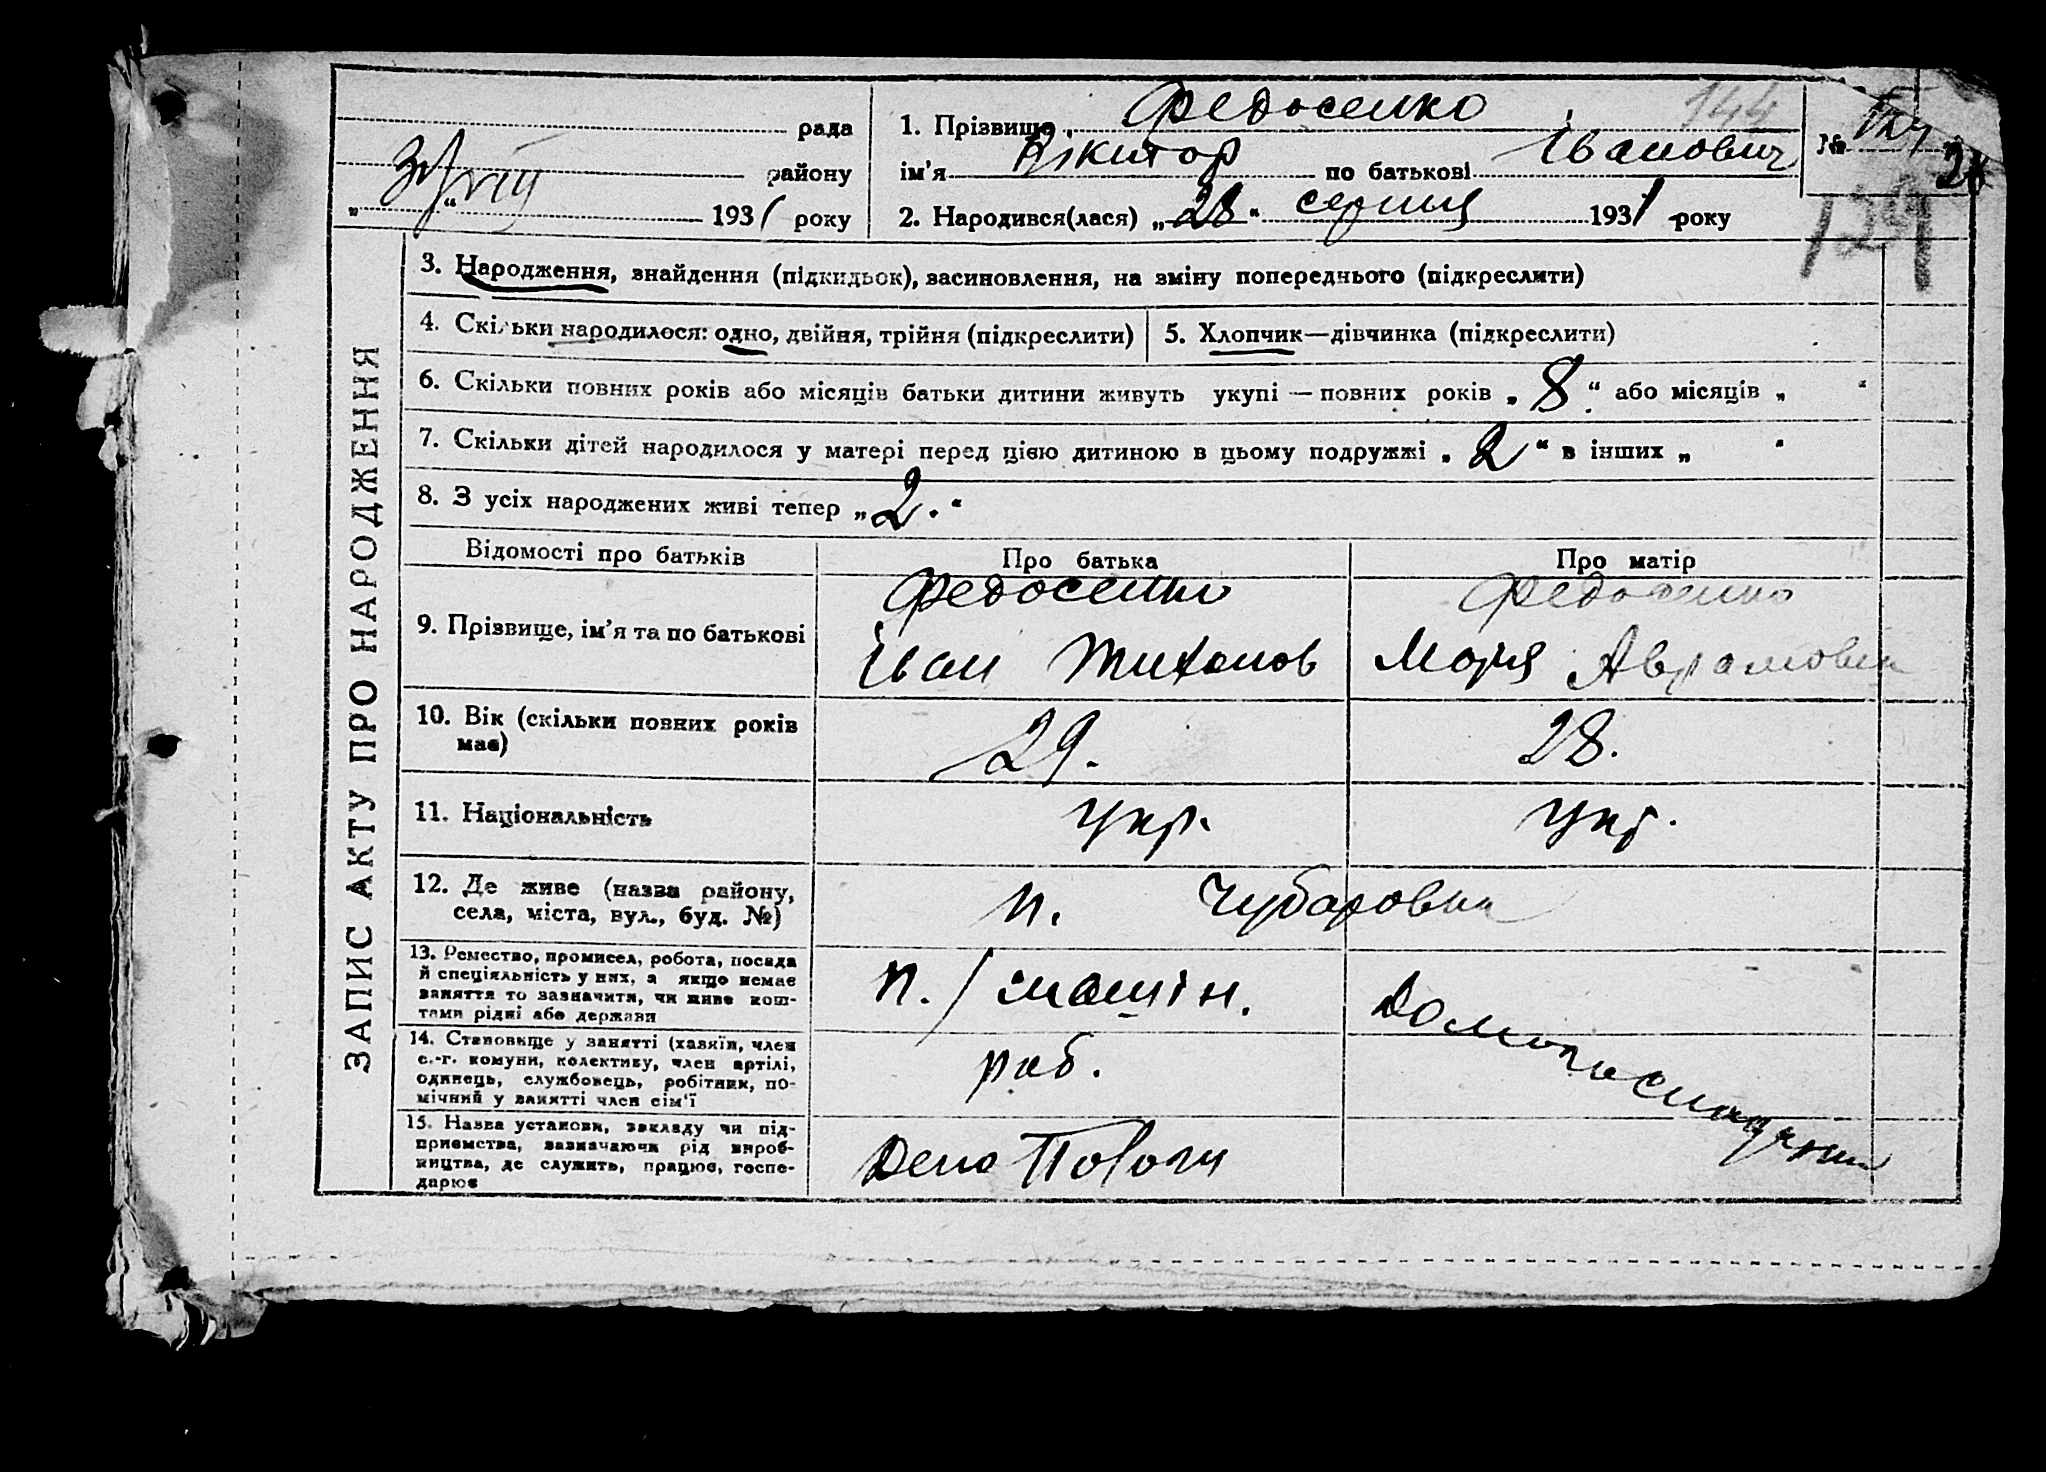 рада
району
3/VIII
„ “ 1931 року
1. Прізвище Федосенко
ім’я Віктор по батькові Іванович
2. Народився(лася) „28“ серпня 1931 року
144
№ 124
28
129
ЗАПИС АКТУ ПРО НАРОДЖЕННЯ
3. Народження, знайдення (підкидьок), засиновлення, на зміну попереднього (підкреслити)
4. Скільки народилося: одно, двійня, трійня (підкреслити)
5. Хлопчик—дівчинка (підкреслити)
6. Скільки повних років або місяців батьки дитини живуть укупі — повних років „8“ або місяців „ “
7. Скільки дітей народилося у матері перед цією дитиною в цьому подружжі „2“ в інших „ “
8. З усіх народжених живі тепер „2.“
Відомості про батьків Про батька Про матір
9. Прізвище, ім’я та по батькові
Федосенко
Іван Тихонов
Федосенко
Марія Аврамовна
10. Вік (скільки повних років
має)
29.
28.
11. Національність укр. укр.
12. Де живе (назва району,
села, міста, вул., буд. №)
п. Чубаровка
13. Ремество, промисел, робота, посада
й спеціяльність у них, а якщо немає
заняття то зазначити, чи живе кош-
тами рідні або держави
п./машін.
Домогосподарка
14. Становище у занятті (хазяїн, член
с.-г. комуни, колективу, член артілі,
одинець, службовець, робітник, по-
мічний у занятті член сім’ї
роб.
15. Назва установи, закладу чи під-
приємства, зазначаючи рід вироб-
ництва, де служить, працює, госпо-
дарює
Депо Пологи